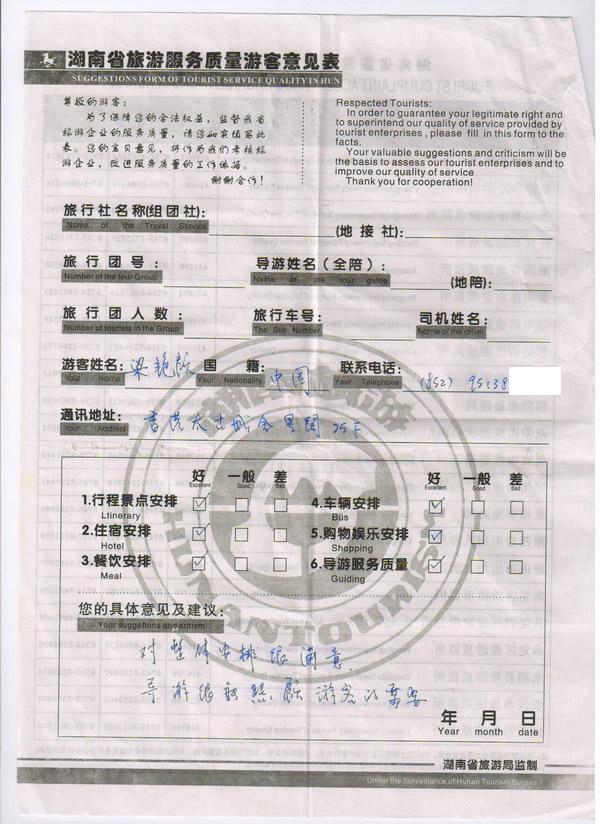 湖南省旅游服务质量游客意见表
SUGGESTIONS FORM OF TOURIST SERVICE QUALITY IN HUN
尊敬的游客：
为了保障您的合法权益，监督我省
旅游企业的服务质量，请您如实填写此
表。您的宝贵意见，将作为我们考核旅
游企业，改进服务质量的工作依据。
谢谢合作！
Respected Tourists:
In order to guarantee your legitimate right and
to superintend our quality of service provided by
tourist enterprises , please fill in this form to the
facts.
Your valuable suggestions and criticism will be
the basis to assess our tourist enterprises and to
improve our quality of service
Thank you for cooperation!
旅行社名称(组团社): (地接社):
Name of the Travel Service
旅行团号: 导游姓名(全陪): (地陪):
Number of the tour Group Name of the tour guide
旅行团人数: 旅行车号: 司机姓名:
Number of tourists in the Group The Bus Number Name of the driver
游客姓名: 梁艳颜 国籍: 中国 联系电话: (852) 9538
Your Name Your Nationality Your Telephone
通讯地址: 香港太古城金星阁25F
Your Address
好 一般 差 好 一般 差
Excellent Good Bad Excellent Good Bad
1.行程景点安排 4.车辆安排
Ltinerary Bus
2.住宿安排 5.购物娱乐安排
Hotel Shopping
3.餐饮安排 6.导游服务质量
Meal Guiding
HUNAN TOURISM
您的具体意见及建议:
Your suggestions and critism
对整体安排很满意.
导游很能照顾游客的需要
年 月 日
Year month date
湖南省旅游局监制
Under the Surveillance of Hunan Tourism Bureau